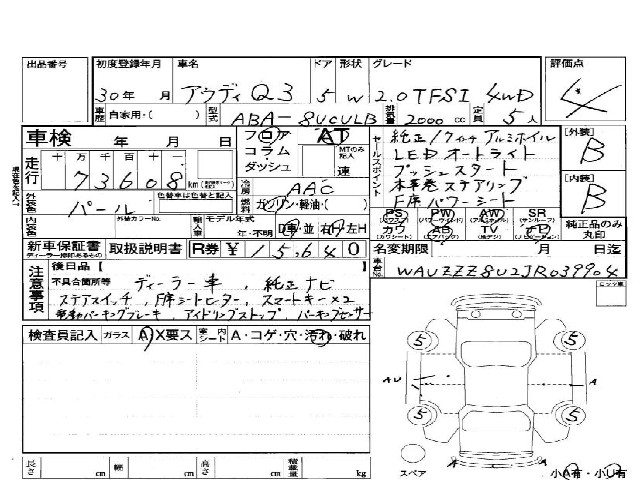 出品番号 初度登録年月 車名 ドア 形状 グレード 評価点
30年 月 アウディ Q3 5 W 2.0TFSI 4WD 4
車歴 自家用・( ) 型式 ABA-8UCULB 排気量 2000cc 定員 5人
車検 年 月 日 フロア AT
コラム MTのみ記入
ダッシュ 速
走行 十万 万 千 百 十 一
73608 km
冷房 AAC
外装色 パール 色替車は色替と記入
燃料 ガソリン・軽油・( )
内装色 外装カラーNo. 輸入車 モデル年式 年・不明 D車・並 右H・左H
新車保証書 取扱説明書 R券 ¥15,640
セールスポイント
純正17インチ アルミホイル
LEDオートライト
プッシュスタート
本革巻ステアリング
F席パワーシート
PS PW AW SR
(パワーステアリング) (パワーウインド) (アルミホイール) (サンルーフ)
カワ AB TV ナビ
(カワシート) (エアバッグ) (地デジ) (ナビゲーション)
[外装] B
[内装] B
純正品のみ丸印
名変期限 月 日迄
車台No. WAUZZZ8U2JR039904
注意事項
後日品【
不具合箇所等 ディーラー車, 純正ナビ
ステアスイッチ, F席シートヒーター, スマートキー×2
電動パーキングブレーキ, アイドリングストップ, パーキングセンサー
検査員記入 ガラス A・X要ス 室内シート A・コゲ・穴・汚れ・破れ
5 5
AU A
5 5
スペア 小A有・小U有
長さ cm 幅 cm 高さ cm 積載量 kg